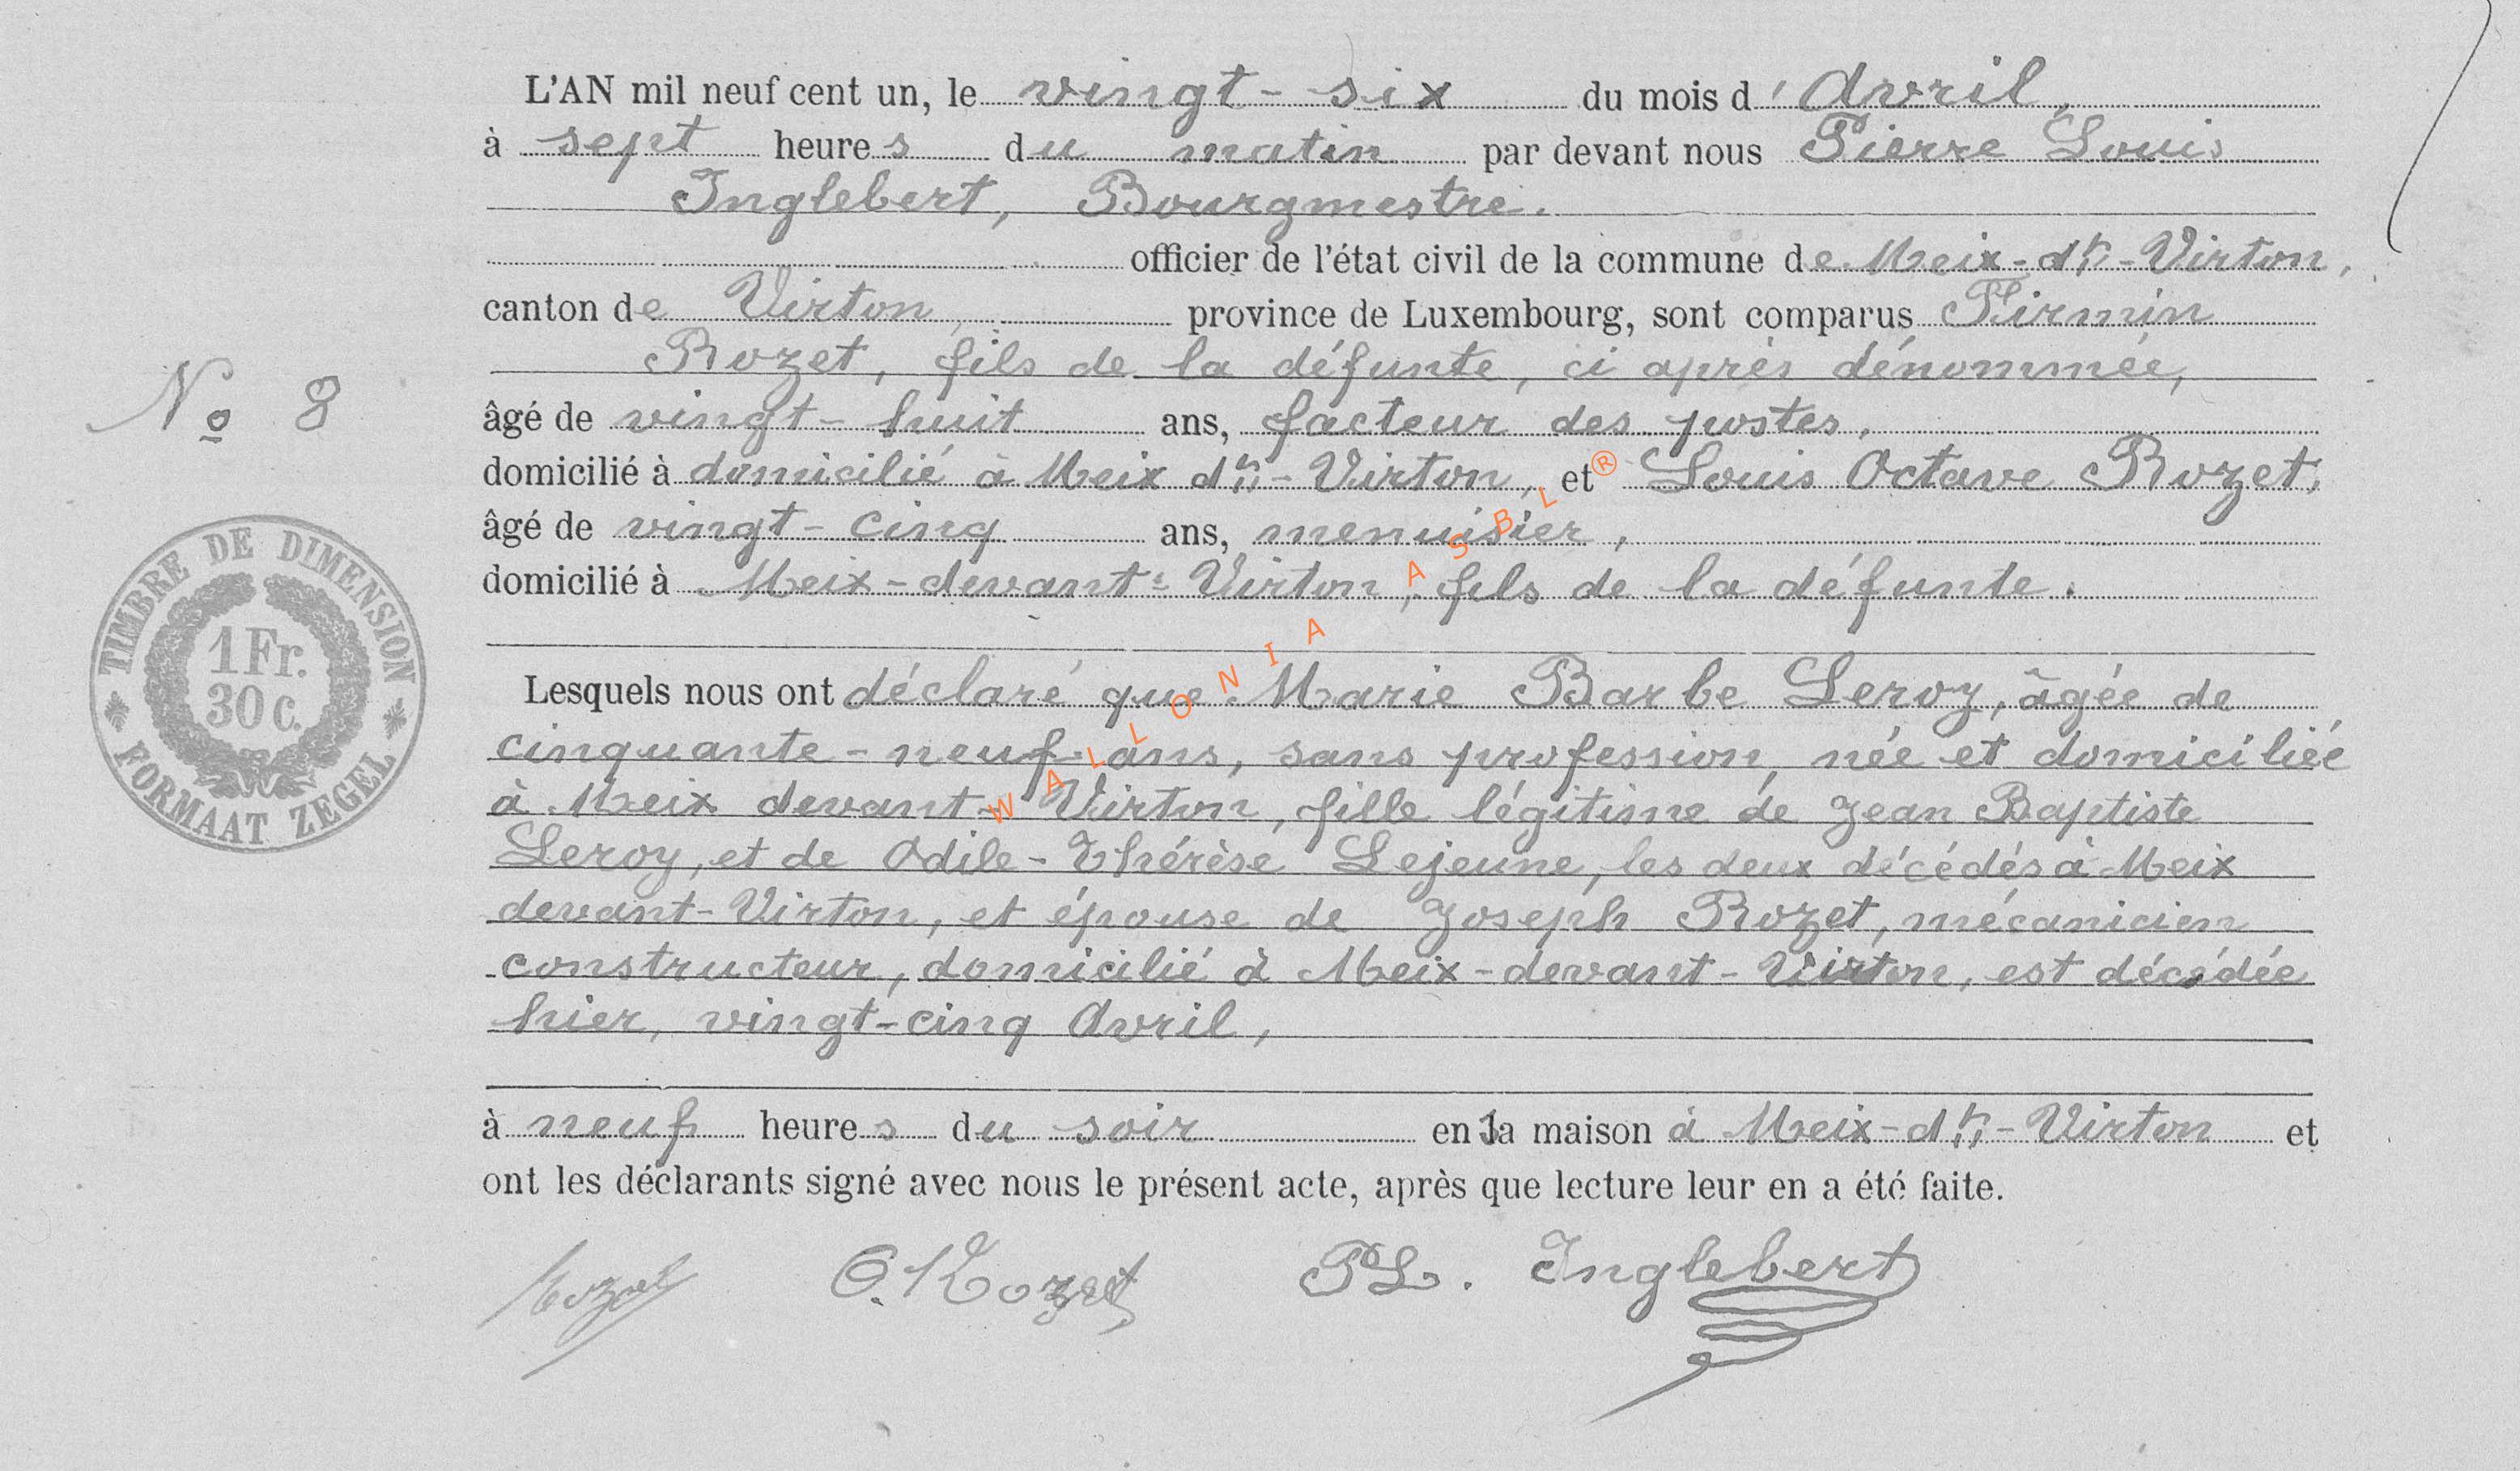 L'AN mil neuf cent un, le vingt-six du mois d'Avril,
à sept heures du matin par devant nous Pierre Louis
Inglebert, Bourgmestre.
officier de l'état civil de la commune de Meix-dt-Virton,
canton de Virton, province de Luxembourg, sont comparus Firmin
Rozet, fils de la défunte, ci après dénommée,
N° 8
âgé de vingt-huit ans, facteur des postes,
domicilié à domicilié à Meix dt-Virton, et Louis Octave Rozet,
âgé de vingt-cinq ans, menuisier,
domicilié à Meix-devant-Virton, fils de la défunte.
TIMBRE DE DIMENSION
1 Fr.
30 c.
FORMAAT ZEGEL
Lesquels nous ont déclaré que Marie Barbe Leroy, âgée de
cinquante-neuf ans, sans profession, née et domiciliée
à Meix devant-Virton, fille légitime de Jean Baptiste
Leroy, et de Odile-Thérèse Lejeune, les deux décédés à Meix
devant-Virton, et épouse de Joseph Rozet, mécanicien
constructeur, domicilié à Meix-devant-Virton, est décédée
hier, vingt-cinq Avril,
à neuf heures du soir en la maison à Meix-dt-Virton et
ont les déclarants signé avec nous le présent acte, après que lecture leur en a été faite.
Rozet O. Rozet PL. Inglebert
WALLONIA ASBL ®